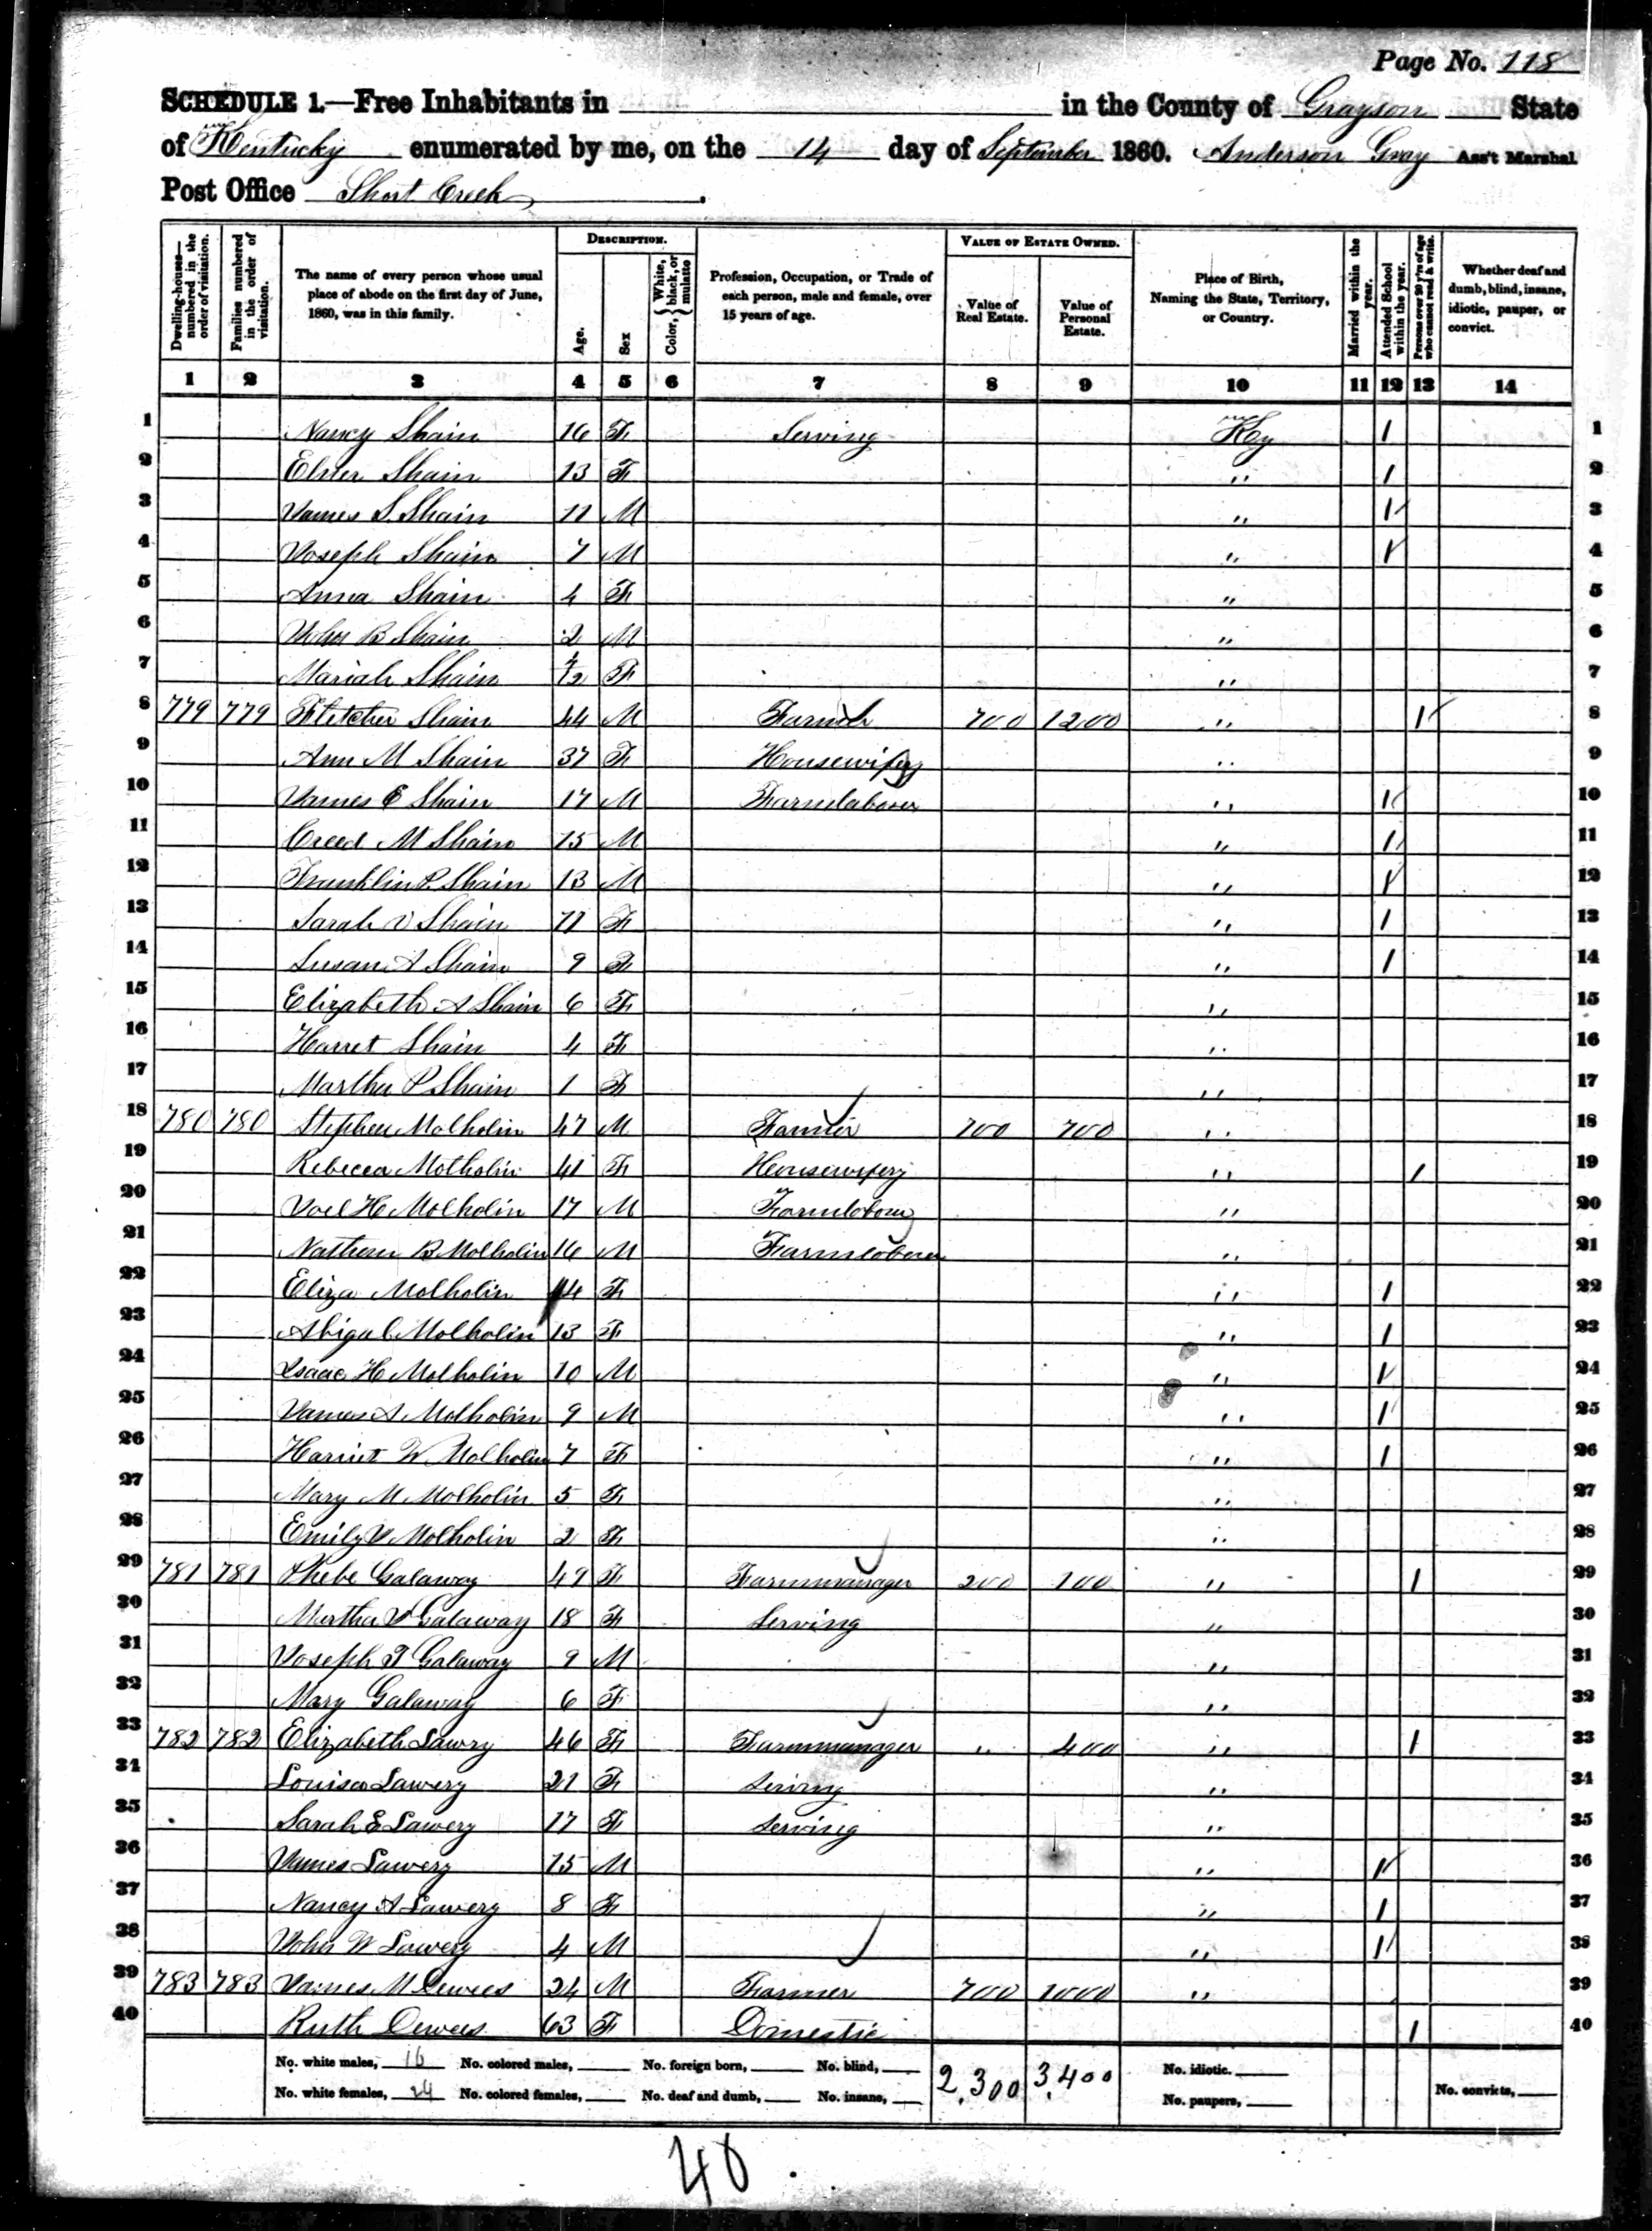 Page No. 118
SCHEDULE 1.—Free Inhabitants in in the County of Grayson State
of Kentucky enumerated by me, on the 14 day of September 1860. Anderson Gray Ass't Marshal
Post Office Short Creek.
Dwelling-houses—numbered in the order of visitation.
Families numbered in the order of visitation.
The name of every person whose usual place of abode on the first day of June, 1860, was in this family.
DESCRIPTION.
Age.
Sex
Color, {White, black, or mulatto
Profession, Occupation, or Trade of each person, male and female, over 15 years of age.
VALUE OF ESTATE OWNED.
Value of Real Estate.
Value of Personal Estate.
Place of Birth, Naming the State, Territory, or Country.
Married within the year.
Attended School within the year.
Persons over 20 y'rs of age who cannot read & write.
Whether deaf and dumb, blind, insane, idiotic, pauper, or convict.
1 2 3 4 5 6 7 8 9 10 11 12 13 14
1 Nancy Shain 16 F Serving Ky 1 1
2 Shain 13 F " 1 2
3 James S. Shain 11 M " 1 3
4 Joseph Shain 7 M " 1 4
5 Anna Shain 4 F " 5
6 John B Shain 2 M " 6
7 Mariah Shain F " 7
8 779 779 Fletcher Shain 44 M Farmer 700 1200 " 1 8
9 Ann M Shain 37 F Housewifery " 9
10 James E Shain 17 M Farmlaborer " 1 10
11 Creed M Shain 15 M " 1 11
12 Franklin P. Shain 13 M " 1 12
13 Sarah V Shain 11 F " 1 13
14 Susan A Shain 9 F " 1 14
15 Elizabeth A Shain 6 F " 15
16 Harret Shain 4 F " 16
17 Martha P Shain 1 F " 17
18 780 780 Stephen Molholin 47 M Farmer 700 700 " 18
19 Rebecca Motholin 41 F Housewifery " 1 19
20 Joel H Molholin 17 M Farmlaborer " 20
21 Nathan B Molholin 16 M Farmlaborer " 21
22 Eliza Molholin 14 F " 1 22
23 Abigal Molholin 13 F " 1 23
24 Isaac H Molholin 10 M " 1 24
25 James A Molholin 9 M " 1 25
26 Harriet W Molholin 7 F " 1 26
27 Mary M Molholin 5 F " 27
28 Emily V Molholin 2 F " 28
29 781 781 Phebe Galaway 49 F Farmmanager 200 100 " 1 29
30 Martha Galaway 18 F Serving " 30
31 Joseph T Galaway 9 M " 31
32 Mary Galaway 6 F " 32
33 782 782 Elizabeth Lawry 46 F Farmmanager " 400 " 1 33
34 Louisa Lawery 21 F Serving " 34
35 Sarah E Lawery 17 F Serving " 35
36 James Lawery 15 M " 1 36
37 Nancy A Lawery 8 F " 1 37
38 John W Lowery 4 M " 1 38
39 783 783 James M Dewees 24 M Farmer 700 1000 " 39
40 Ruth Dewees 63 F Domestic 1 40
No. white males, 16 No. colored males, No. foreign born, No. blind, 2,300 3,400 No. idiotic.
No. white females, 24 No. colored females, No. deaf and dumb, No. insane, No. paupers, No. convicts,
40